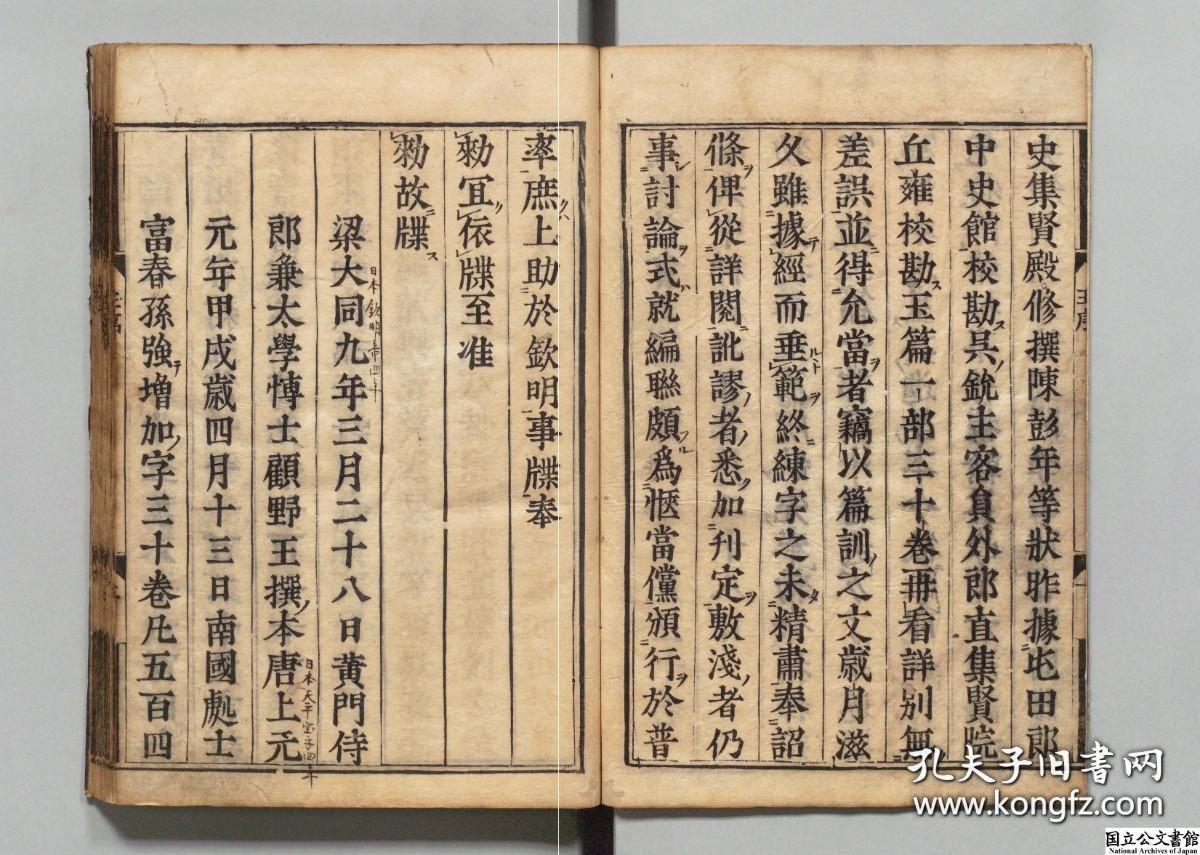 史集賢殿修撰陳彭年等狀昨據屯田郎
中史館校勘吳銳主客負外郎直集賢院
丘雍校勘玉篇一部三十卷再看詳別無
差誤並得允當者竊以篇訓之文歲月滋
久雖據經而垂範終練字之未精肅奉詔
條俾從詳閱訛謬者悉加刊定敷淺者仍
事討論式就編聯頗為愜當儻頒行於普
率庶上助於欽明事牒奉
勑宜依牒至准
勑故牒
梁大同九年三月二十八日黃門侍
日本欽明帝四年
郎兼太學愽士顧野王撰本唐上元
日本天平宝字四年
元年甲戌歲四月十三日南國處士
富春孫強增加字三十卷凡五百四
玉序
孔夫子旧書网
www.kongfz.com
国立公文書館
National Archives of Japan